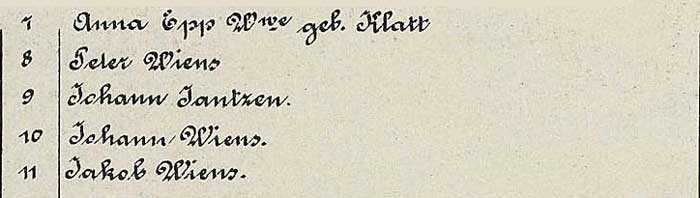 7 Anna Epp Wwe geb. Klatt
8 Peter Wiens
9 Johann Jantzen.
10 Johann Wiens.
11 Jakob Wiens.